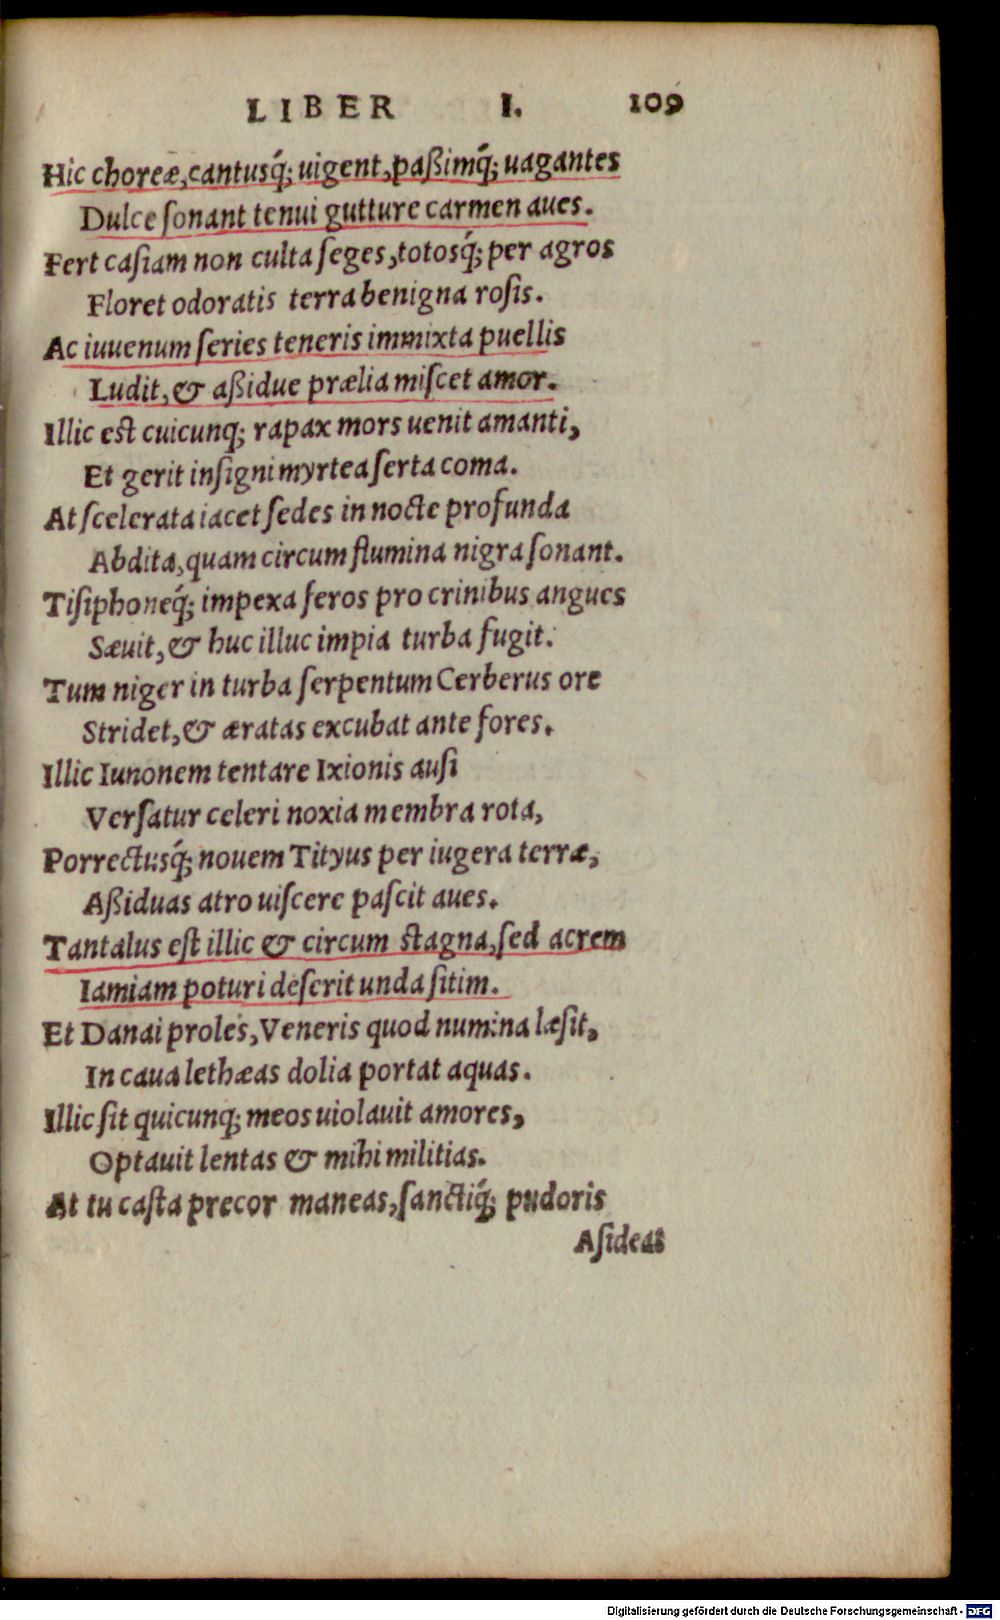 LIBER I. 109
Hic choreæ, cantusq́; uigent, paßimq́; uagantes
Dulce sonant tenui gutture carmen aues.
Fert casiam non culta seges, totosq́; per agros
Floret odoratis terra benigna rosis.
Ac iuuenum series teneris immixta puellis
Ludit, & aßidue prælia miscet amor.
Illic est cuicunq; rapax mors uenit amanti,
Et gerit insigni myrtea serta coma.
At scelerata iacet sedes in nocte profunda
Abdita, quam circum flumina nigra sonant.
Tisiphoneq́; impexa feros pro crinibus angues
Sæuit, & huc illuc impia turba fugit.
Tum niger in turba serpentum Cerberus ore
Stridet, & æratas excubat ante fores.
Illic Iunonem tentare Ixionis ausi
Versatur celeri noxia membra rota,
Porrectusq́; nouem Tityus per iugera terræ,
Aßiduas atro uiscere pascit aues.
Tantalus est illic & circum stagna, sed acrem
Iamiam poturi deserit unda sitim.
Et Danai proles, Veneris quod numina læsit,
In caua lethæas dolia portat aquas.
Illic sit quicunq; meos uiolauit amores,
Optauit lentas & mihi militias.
At tu casta precor maneas, sanctiq́; pudoris
Asideat
Digitalisierung gefördert durch die Deutsche Forschungsgemeinschaft - DFG